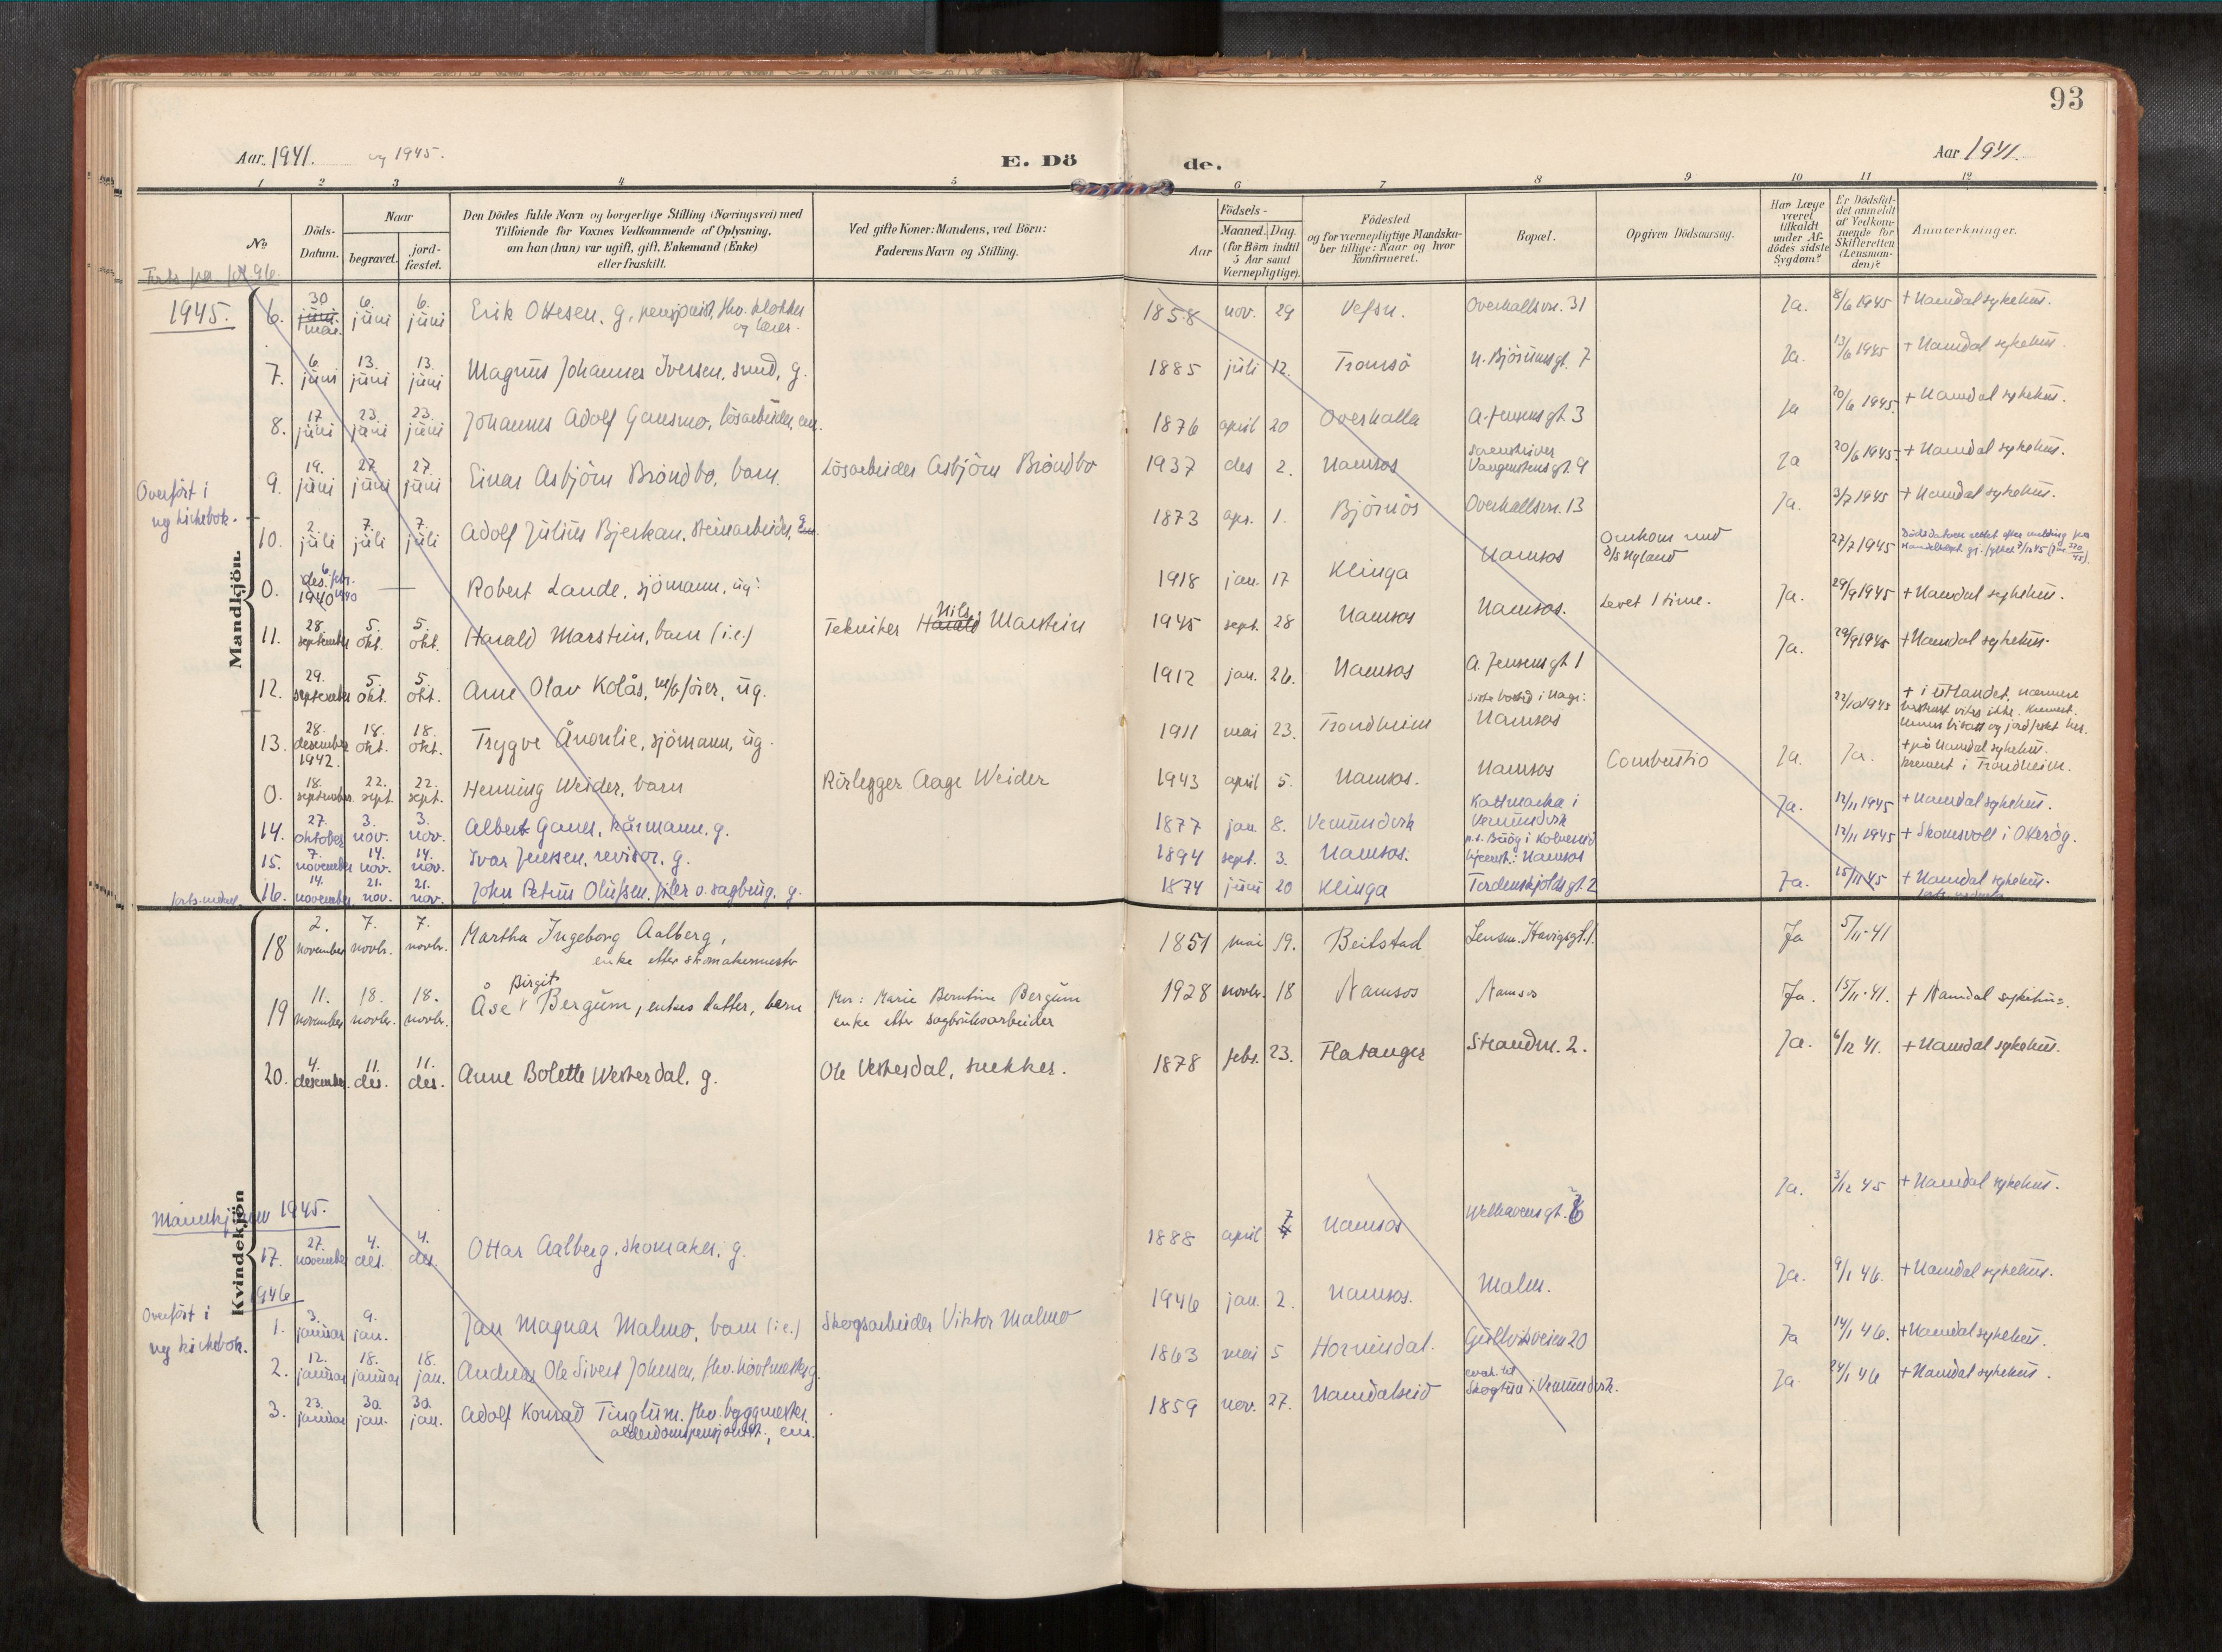 93
Aar 1941. og 1945.
E. Dö
de.
Aar 1941.
1 2 3 4 5 6 7 8 9 10 11 12
No
Döds-
Datum.
Naar
begravet.
jord-
fæstet.
Den Dödes fulde Navn og borgerlige Stilling (Næringsvei) med
Tilföiende for Voxnes Vedkommende af Oplysning,
om han (hun) var ugift, gift, Enkemand (Enke)
eller fraskilt.
Ved gifte Koner: Mandens, ved Börn:
Faderens Navn og Stilling.
Födsels-
Aar
Maaned. Dag.
(for Börn indtil
5 Aar samt
Værnepligtige).
Födested
og for værnepligtige Mandska-
ber tillige: Naar og hvor
konfirmeret.
Bopæl.
Opgiven Dödsaarsag.
Har Læge
været
tilkaldt
under Af-
dödes sidste
Sygdom?
Er Dödsfal-
det anmeldt
af Vedkom-
mende for
Skifteretten
(Lensman-
den)?
Anmerkninger.
96.
1945.
Mandkjön.
Overfört i
ny kirkebok.
6. 30 juni mai 6. juni 6. juni Erik Ottesen, g, pensjonist, fhv. klokker 1858 nov. 29 Vefsn. Overhallsvn. 31 Ja. 8/6 1945 + Namdal sykehus.
og lærer.
7. 6. juni 13. juni 13. juni Magnus Johannes Iversen, smed, g. 1885 juli 12. Tromsö N. Björumsgt. 7 Ja. 13/6 1945 + Namdal sykehus.
8. 17 juni 23. juni 23. juni Johannes Adolf Gansmo, lösarbeider, em. 1876 april 20 Overhalla A. Jensensgt 3 Ja 20/6 1945. + Namdal sykehus.
9. 19. juni 27. juni 27. juni Einar Asbjörn Bröndbo, barn. Lösarbeider Asbjörn Bröndbo 1937 des 2. Namsos Sorenskriver Vangenstensgt. 9 Ja 20/6 1945. + Namdal sykehus.
10. 2. juli 7. juli 7. juli Adolf Julius Bjerkan, steinarbeider, em. 1873 apr. 1. Björnös Overhallsvn. 13 Ja. 3/7 1945 + Namdal sykehus.
0. 6 des. febr. 1940 1940 — Robert Lande, sjömann, ug. 1918 jan. 17 Klinga Namsos Omkom med D/S Nyland 27/7 1945 Dödsdatoen rettet efter melding fra
11. 28. september 5. okt. 5. okt. Harald Marstein, barn (i.e.) Tekniker Harald Nils Marstein 1945 sept. 28 Namsos Namsos. Levet 1 time. Ja. 29/9 1945 + Namdal sykehus.
12. 29. september 5. okt. 5. okt. Arne Olav Kolås, m/b förer, ug. 1912 jan. 26. Namsos A. Jensensgt 1 Ja. 29/9 1945 + Namdal sykehus.
13. 28. desember 1942. 18. okt. 18. okt. Trygve Ånonlie, sjömann, ug. 1911 mai 23. Trondheim Siste bosted i Norge: Namsos 22/10 1945 + i utlandet, nærmere
0. 18. september 22. sept 22. sept. Henning Weider, barn Rörlegger Aage Weider 1943 april 5. Namsos. Namsos Combustio Ja. Ja. + på Namdal sykehus.
kremert i Trondheim.
14. 27. oktober 3. nov. 3. nov. Albert Ganes, kårmann, g. 1877 jan. 8. Vemundvik Kattmarka i Vemundvik Ja. 12/11 1945 + Namdal sykehus.
15. 7. november 14. nov. 14. nov. Ivar Jenssen, revisor, g. 1894 sept. 3. Namsos. hjemst.: Namsos 12/11 1945 + Skomsvoll i Otterög.
16. 14. november 21. nov. 21. nov. John Petrus Olufsen, filer o. sagbrug. g. 1874 juni 20 Klinga Tordenskjoldsgt. 2 Ja. 15/11 45 + Namdal sykehus.
Kvindekjön
18 2. november 7. novbr. 7. novbr. Martha Ingeborg Aalberg, 1851 mai 19. Beitstad Lensm. Havigsgt. 1. Ja 5/11-41
enke etter skomakermester
19 11. november 18. novbr. 18. novbr. Åse Birgit Bergum, enkes datter, barn Mor: Marie Berntine Bergum 1928 novbr. 18 Namsos Namsos Ja. 15/11-41. + Namdal sykehus.
enke etter sagbruksarbeider
20. 4. desember. 11. des. 11. des. Anne Bolette Westerdal, g. Ole Vesterdal, snekker. 1878 febr. 23. Flatanger Strandvn. 2. Ja. 6/12 41. + Namdal sykehus.
Mannkjönn 1945.
17. 27. november 4. des. 4. des. Ottar Aalberg, skomaker, g. 1888 april 7 Namsos Welhavensgt. 6 Ja. 3/12 45 + Namdal sykehus.
1946
Overfört i
ny kirkebok.
1. 3. januar 9. jan. Jan Magnar Malmo, barn (i.e.) Skogsarbeider Viktor Malmo 1946 jan. 2. Namsos. Malm. Ja. 9/1 46. + Namdal sykehus.
2. 12. januar 18. januar 18. jan. Andreas Ole Sivert Johnsen, fhv. hovlmester g. 1863 mai 5 Hornindal. Gullvikveien 20 Ja 14/1 46. + Namdal sykehus.
3. 23. januar 30. jan. 30. jan. Adolf Konrad Tinglum. fhv. byggmester. 1859 nov. 27. Namdalseid evak. til Skogtun i Vemundvik. Ja. 24/1 46 + Namdal sykehus.
alderdomspensjonist, em.